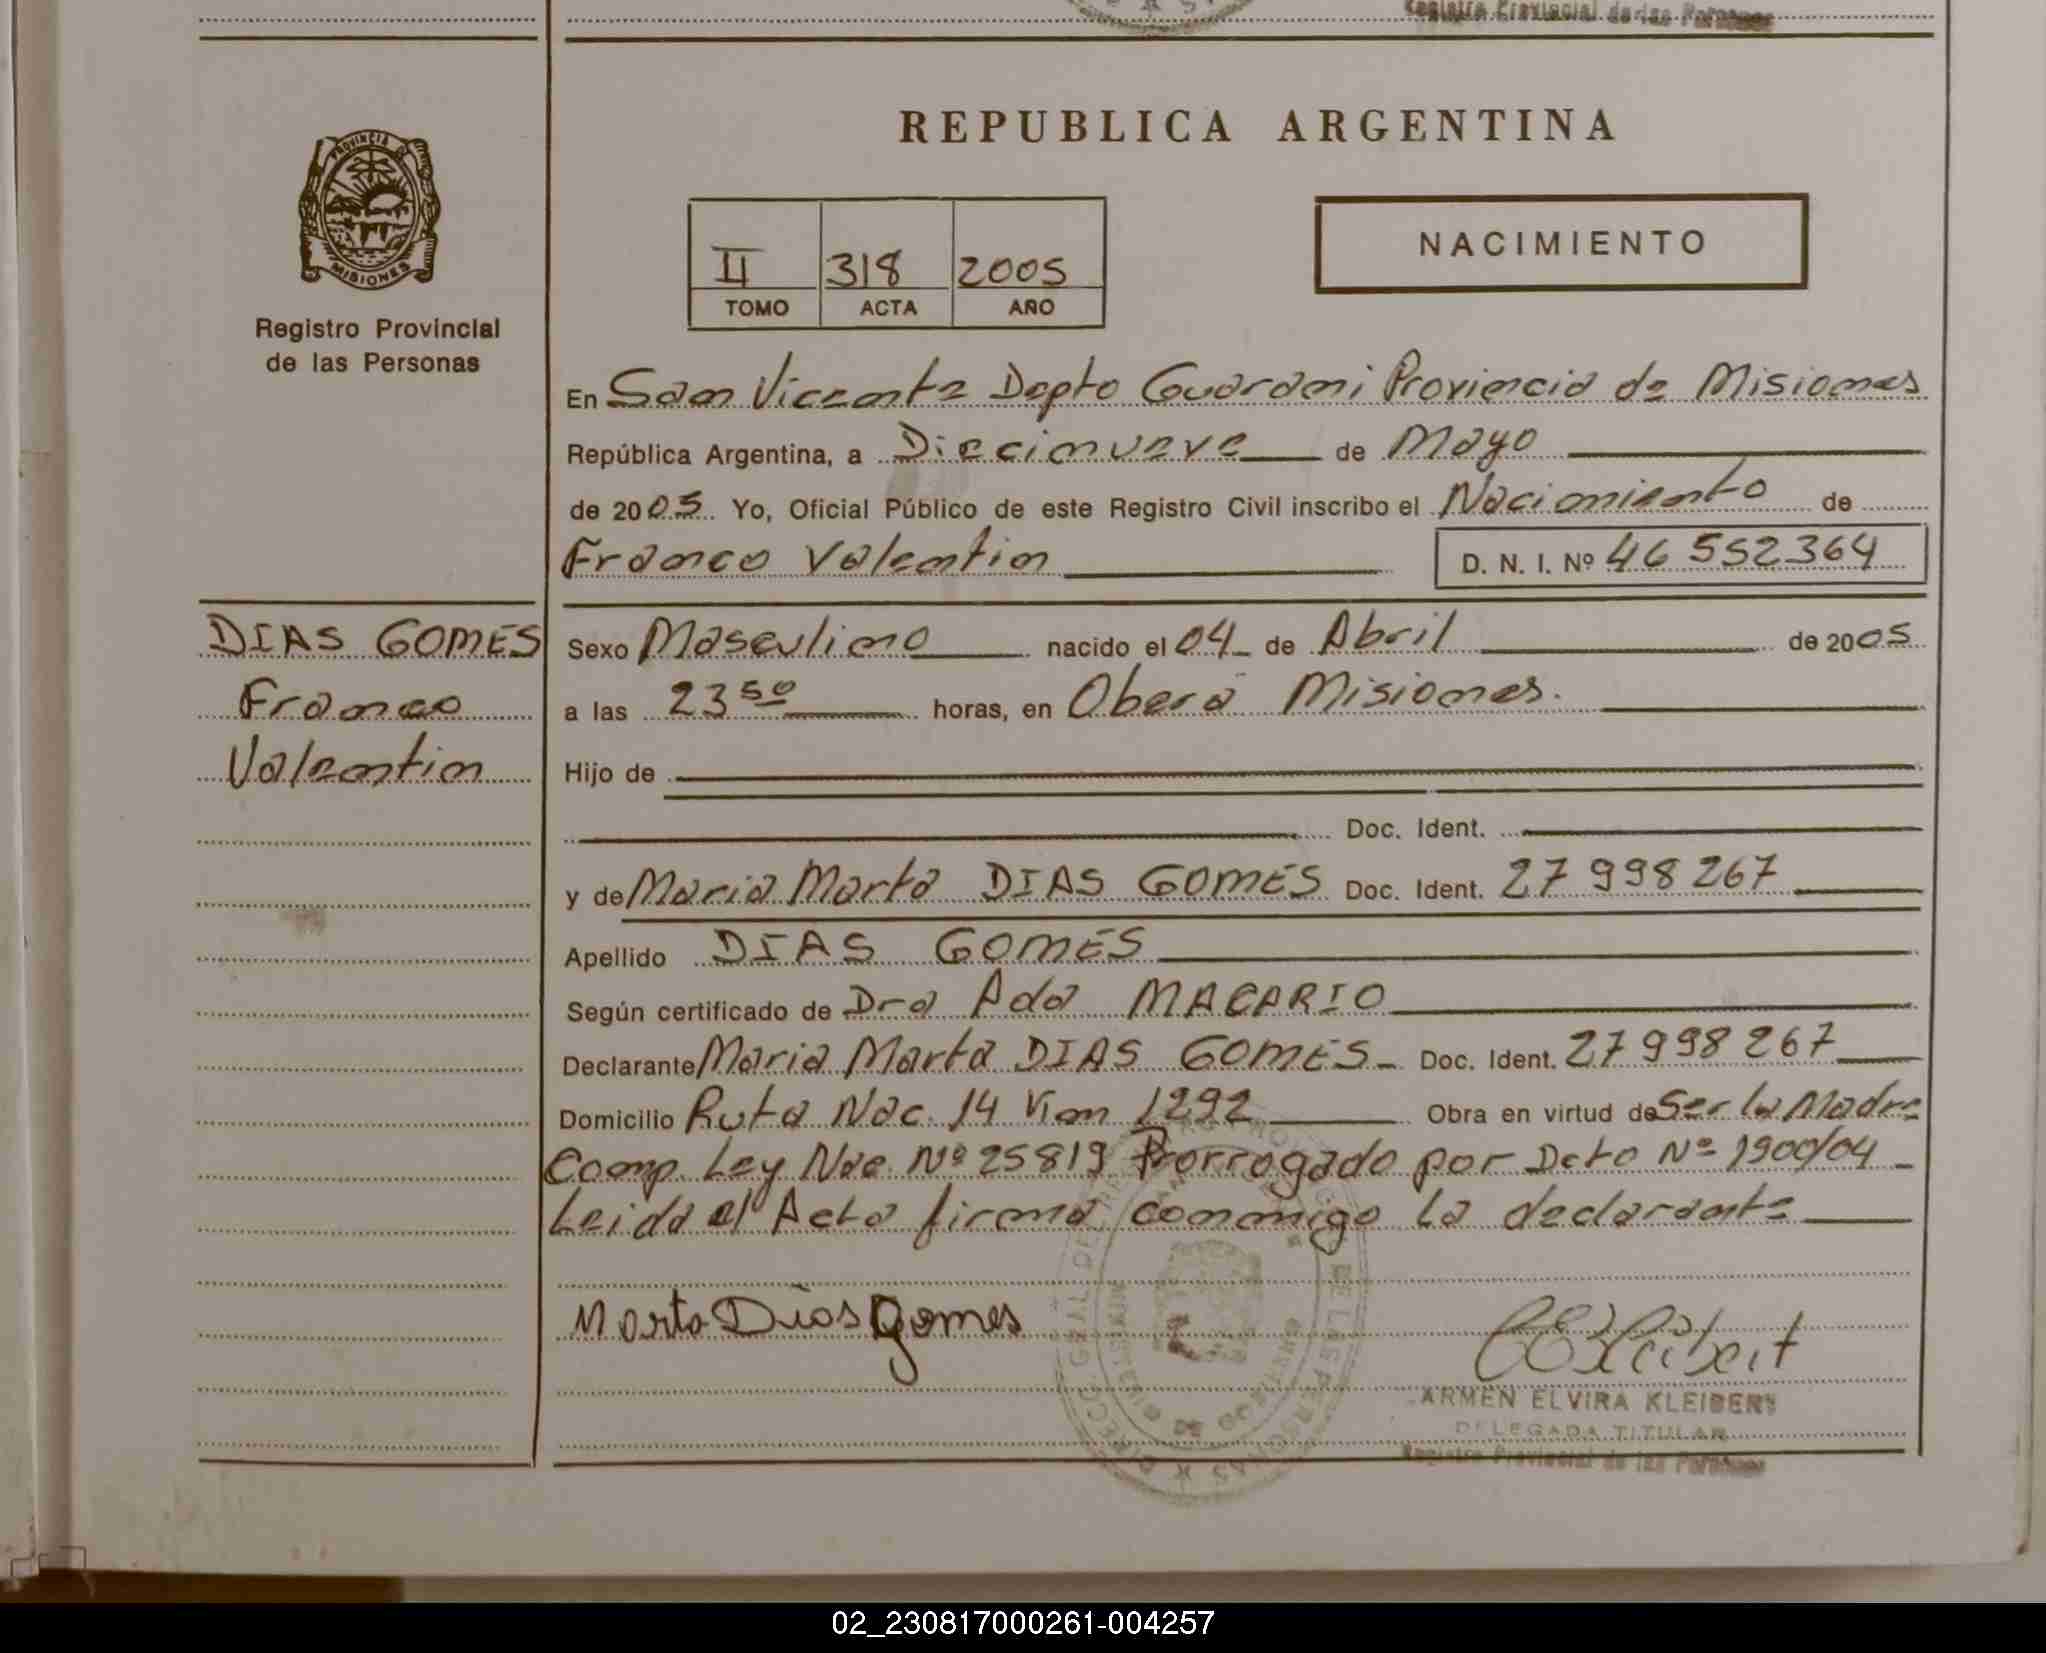 Registro Provincial de las Personas
REPUBLICA ARGENTINA
PROVINCIA DE
MISIONES
Registro Provincial
de las Personas
II 318 2005
TOMO ACTA AÑO
NACIMIENTO
En San Vicente Depto Guarani Provincia de Misiones
República Argentina, a Diecinueve de Mayo
de 2005 Yo, Oficial Público de este Registro Civil inscribo el Nacimiento de
Franco Valentin D. N. I. Nº 46 552364
DIAS GOMES
Franco
Valentin
Sexo Masculino nacido el 04 de Abril de 2005
a las 23 50 horas, en Oberá Misiones.
Hijo de
Doc. Ident.
y de Maria Marta DIAS GOMES Doc. Ident. 27 998 267
Apellido DIAS GOMES
Según certificado de Dra Ada MACARIO
Declarante Maria Marta DIAS GOMES Doc. Ident. 27 998 267
Domicilio Ruta Nac. 14 Km 1292 Obra en virtud de Ser la Madre
Comp. Ley Nac. Nº 25819 Prorrogado por Dcto Nº 1900/04
Leida el Acta firma conmigo la declarante
Marta Dias Gomes
ARMEN ELVIRA KLEIBERT
DELEGADA TITULAR
Registro Provincial de las Personas
02_230817000261-004257